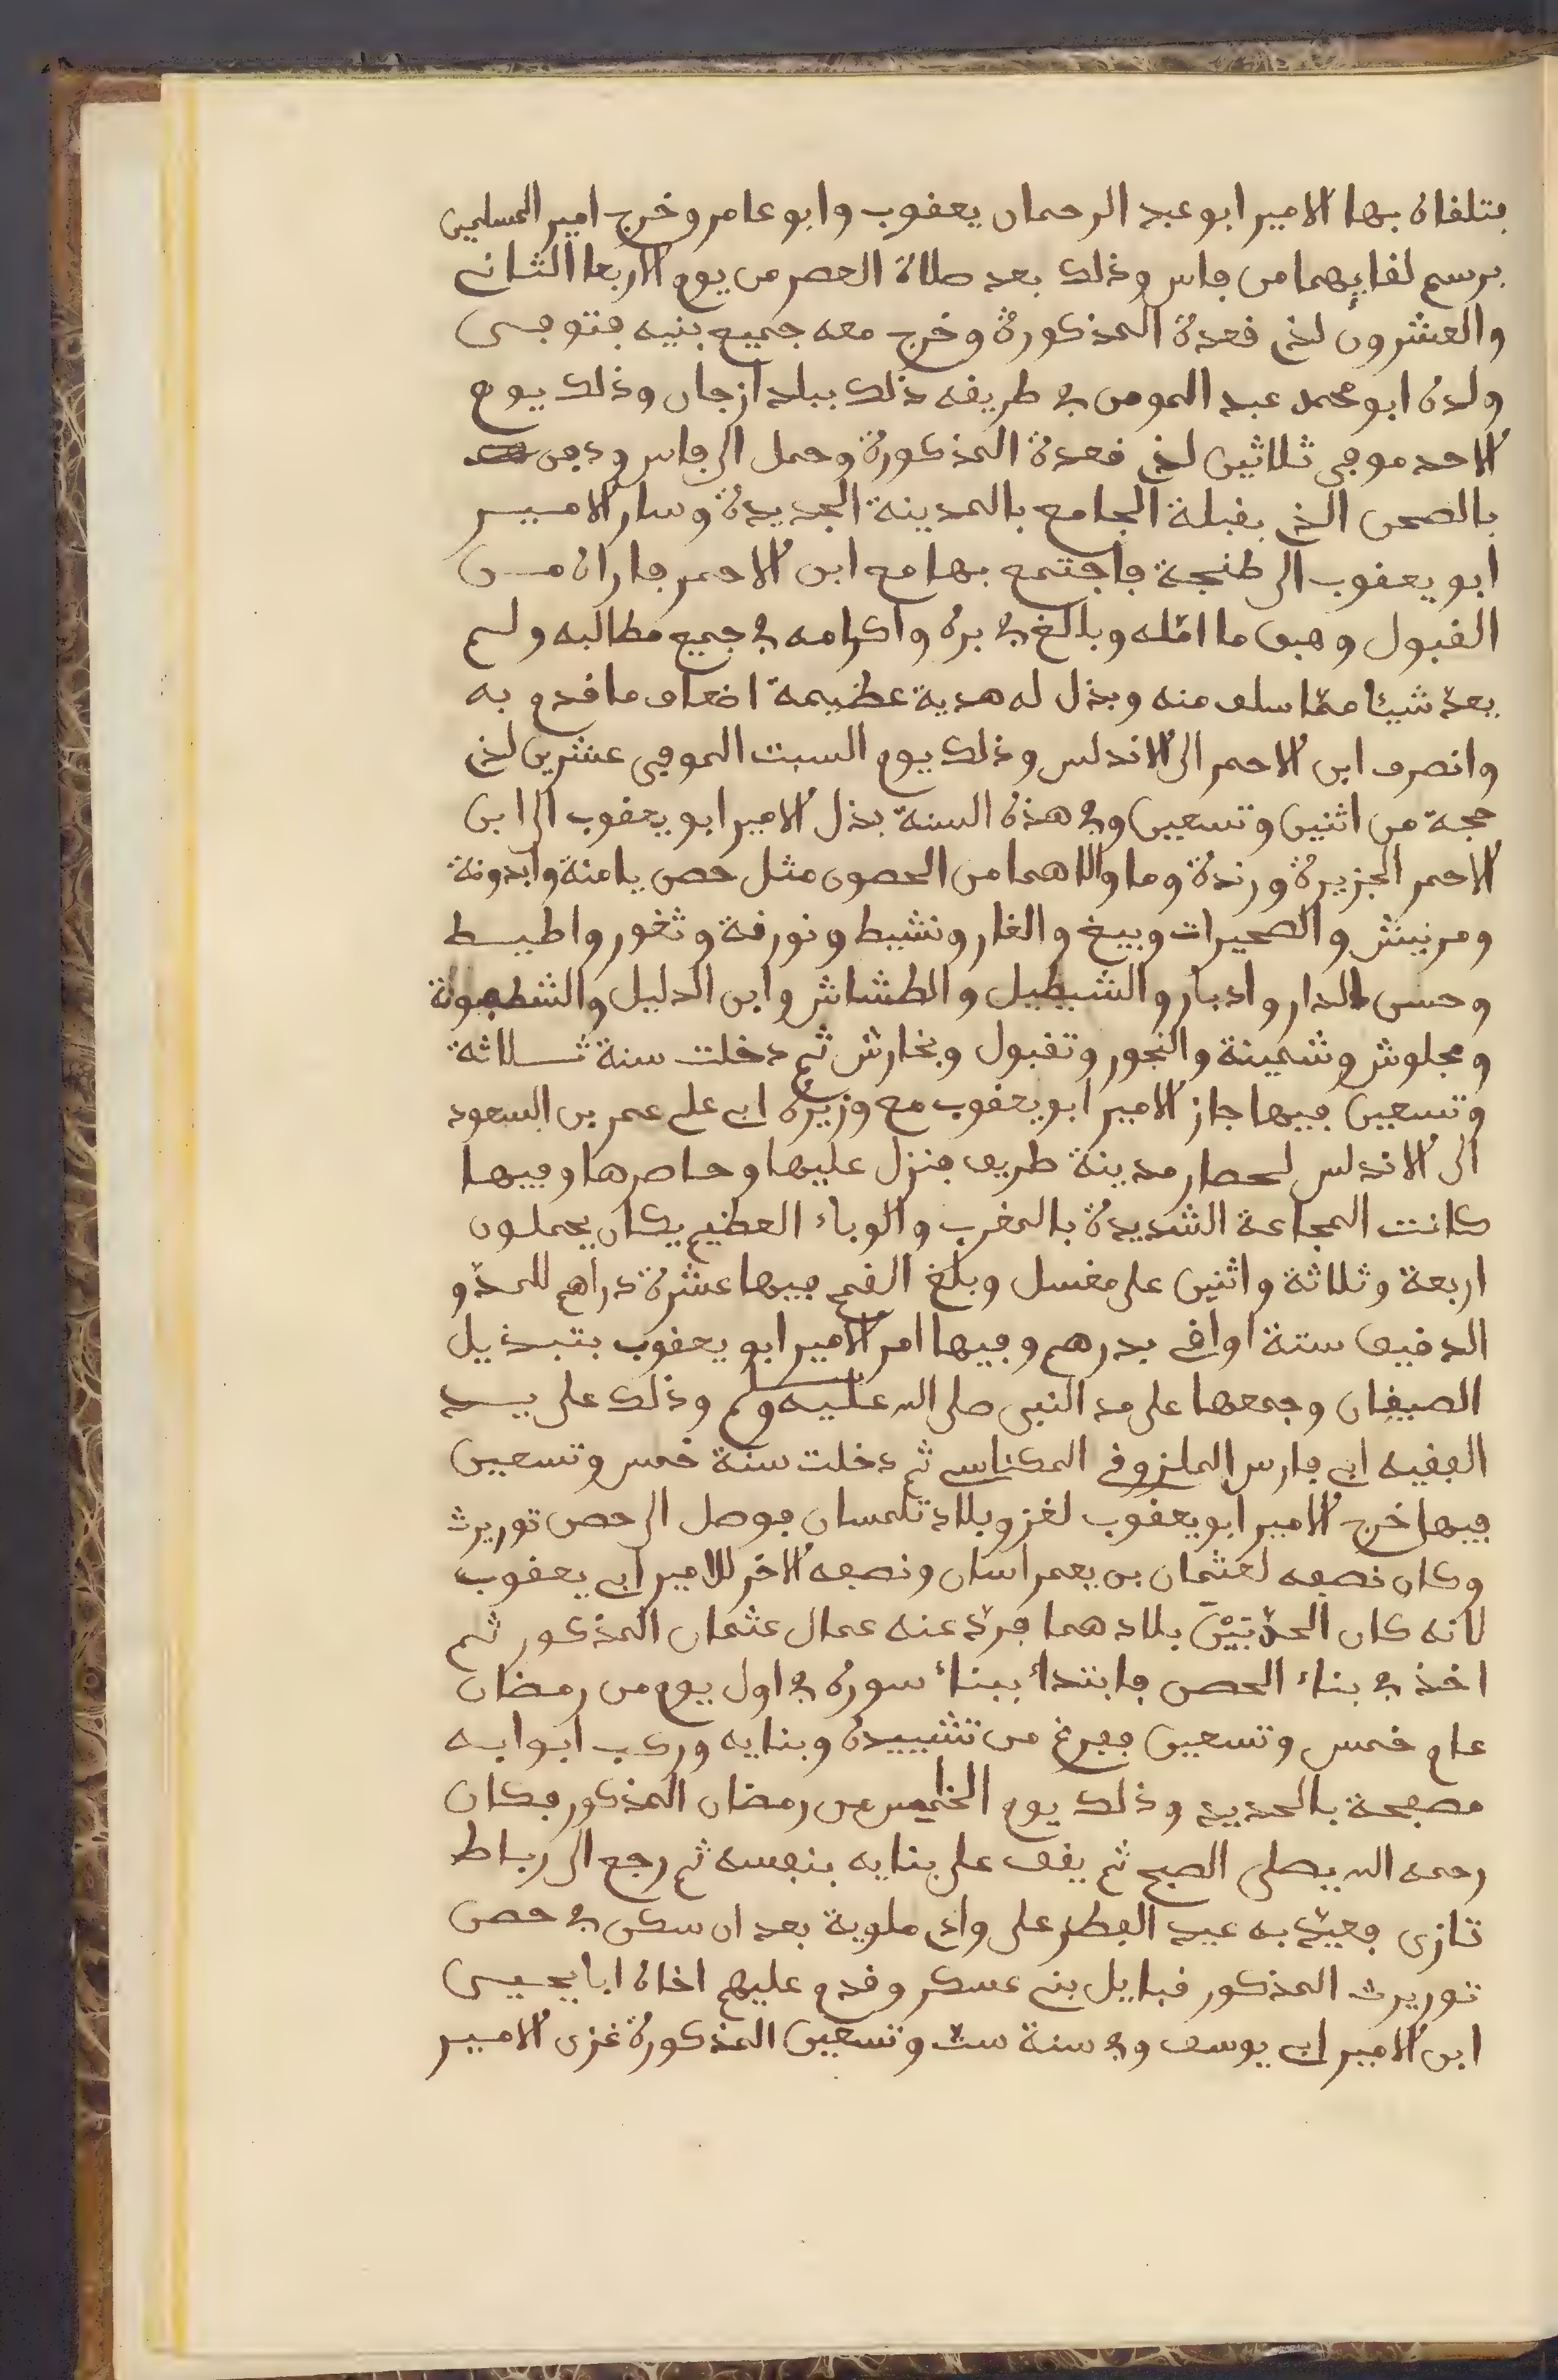 فتلقاه بها الامير ابو عبد الرحمان يعقوب وابو عامر وخرج امير المسلمين
برسم لقايهما من فاس وذلك بعد صلاة العصر من يوم الاربعا الثاني
والعشرون لذي قعدة المذكورة وخرج معه جميع بنيه فتوفى
ولده ابو محمد عبد المومن في طريفه ذلك ببلد ازجان وذلك يوم
الاحد موفى ثلاثين لذي قعدة المذكورة وحمل الى فاس ودفن
بالصحن الذي بقبلة الجامع بالمدينة الجديدة وسار الامير
ابو يعقوب الى طنجة فاجتمع بها مع ابن الاحمر فاراه من
القبول وفبق ما امّله وبالغ في بره واكرامه في جميع مطالبه ولم
يعدّ شيئا ممّا سلف منه وبذل له هدية عظيمة اضعاف ما قدم به
وانصرف ابن الاحمر الى الاندلس وذلك يوم السبت الموفى عشرين لذي
حجة من اثنين وتسعين وفي هذه السنة بذل الامير ابو يعقوب الى ابن
الاحمر الجزيرة ورندة وما والاهما من الحصون مثل حصن يامنة وابدونة
ومرنيش والصحيرات وبيغ والغار ونشيط ونورقة وثغور واطيط
وحسن الدار وادبار والشيطيل والطشاش وابن الدليل والشطبونة
ومجلوش وشمينة والنجور وتقبول وبخارش ثم دخلت سنة ثلاثة
وتسعين فيها جاز الامير ابو يعقوب مع وزيره ابي علي عمر بن السعود
الى الاندلس لحصار مدينة طريف فنزل عليها وحاصرها وفيها
كانت المجاعة الشديدة بالمغرب والوباء العظيم فكان يحملون
اربعة وثلاثة واثنين على مغسل وبلغ القمح فيها عشرة دراهم للمدّ و
الدقيق ستة اواقي بدرهم وفيها امر الامير ابو يعقوب بتبذيل
الصيفان وجمعها على مد النبي صلى الله عليه وسلم وذلك على يد
الفقيه ابي فارس الملزوزي المكناسي ثم دخلت سنة خمس وتسعين
فيها خرج الامير ابو يعقوب لغزو بلاد تلمسان فوصل الى حصن توريرت
وكان نصفه لعثمان بن يعمراسان ونصفه الاخر للامير ابي يعقوب
لانه كان الحدّ بَيْنَ بلادهما فردّ عنه عمال عثمان المذكور ثم
اخذ في بناء الحصن فابتدأ ببناء سوره في اول يوم من رمضان
عام خمس وتسعين ففرغ من تشييده وبنايه وركب ابوابه
مصفحة بالحديد وذلك يوم الخامس من رمضان المذكور فكان
رحمه الله يصلى الصبح ثم يقف على بنايه بنفسه ثم رجع الى رباط
تازى فعيّد به عيد الفطر على وادي ملوية بعد ان سكن في حصن
توريرت المذكور قبايل بني عسكر وقدم عليهم اخاه ابا يحيى
ابن الامير ابي يوسف وفي سنة ستّ وتسعين المذكورة غزى الامير